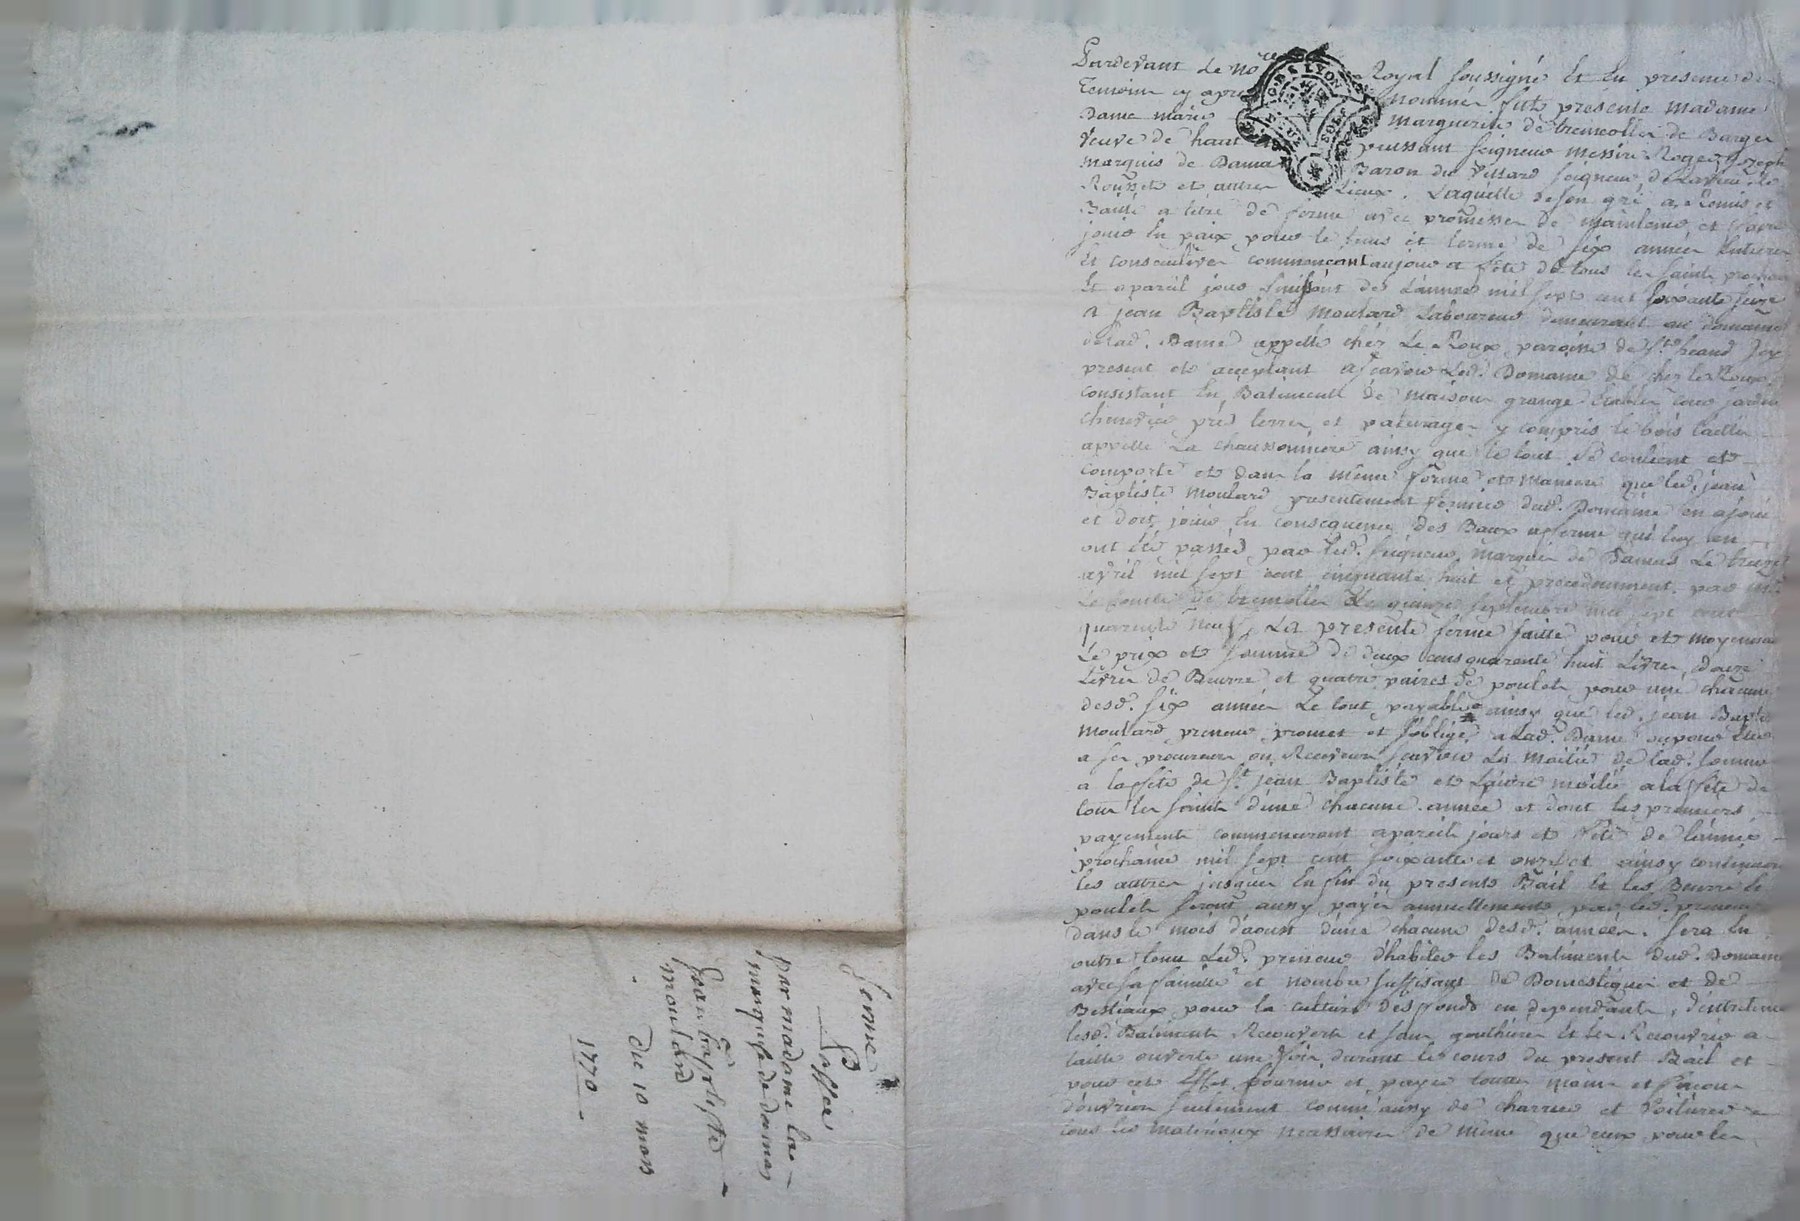 Pardevant Le no.re Royal soussigné Et En présence de
Temoins cy apres nommés fut presente madame
Dame marie marguerite de tremollet de Barges
veuve de haut et puissant seigneur messire Roger Joseph
marquis de Damas Baron du Villard seigneur de
Rousset et autres Lieux. Laquelle de son gré a Remis et
Baillé a titre de ferme avec promesses de maintenir et faire
jouir En paix pour le tems et terme de six années Entieres
Et consecutives commençant au jour et fete de tous les saints prochain
Et a pareil jour finissant de L'année mil sept cent soixante seize
a jean Baptiste moulard Laboureur demeurant au domaine
de lad. Dame appellé chés Le Roux paroisse de St. heand Icy
present et acceptant a sçavoir Led. Domaine de chés le Roux
consistant En Batiments de maison grange Etables cour jardin
cheneviere prés terres et paturages y compris le bois taillis
appellé La chaussonniere ainsy que le tout se contient et
comporte et dans la même forme et maniere que led. jean
Baptiste moulard presentement fermier dud. Domaine en a joui
et doit jouir En consequence des Baux a ferme qui luy en
ont été passés par led. seigneur marquis de Damas Le treize
avril mil sept cent cinquante huit et precedemment par
Le comte de tremollet Le quinze septembre mil sept cent
quarante neuf, La presente ferme faitte pour et moyennant
Le prix et somme de deux cens quarante huit Livres, douze
Livres de Beurre et quatre paires de poulets pour une chacune
desd. six années Le tout payable ainsy que led. jean Baptiste
moulard preneur promet et s'oblige a lad. Dame ou pour Elle
a ses procureurs ou Receveurs sçavoir La moitié de lad. somme
a la fête de St. jean Baptiste et L'autre moitié a la fête de
tous les saints d'une chacune année et dont les premiers
payements commenceront a pareils jours et fête de l'année
prochaine mil sept cent soixante et onze et ainsy continuer
les autres jusques En fin du present Bail Et les Beurre et
poulets seront aussy payés annuellement par led. preneur
dans le mois d'aoust d'une chacune desd. années. sera En
outre tenu Led. preneur d'habiter les Batiments dud. Domaine
avec sa famille et nombre suffisant de Domestiques et de
Bestiaux pour la culture des fonds en dependants, d'entretenir
lesd. Batiments Recouverts et sans gouthieres Et les Recouvrir a
taille ouverte une fois durant le cours du present Bail et
pour cet Effet fournir et payer toutes mains et façons
d'ouvriers seulement comm'aussy de charrier et voiturer
tous les materiaux necessaires de même que ceux pour les
ferme
Passée
par madame la
marquise de damas
a jean baptiste
moulard
du 10 mars
1770